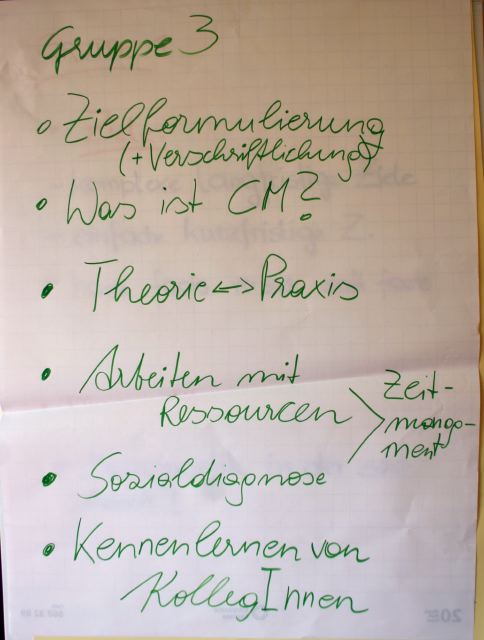 Gruppe 3
Zielformulierung
(+Verschriftlichung)
Was ist CM?
Theorie <-> Praxis
Arbeiten mit
Ressourcen
Zeit-
mange-
ment
Sozialdiagnose
Kennenlernen von
KollegInnen